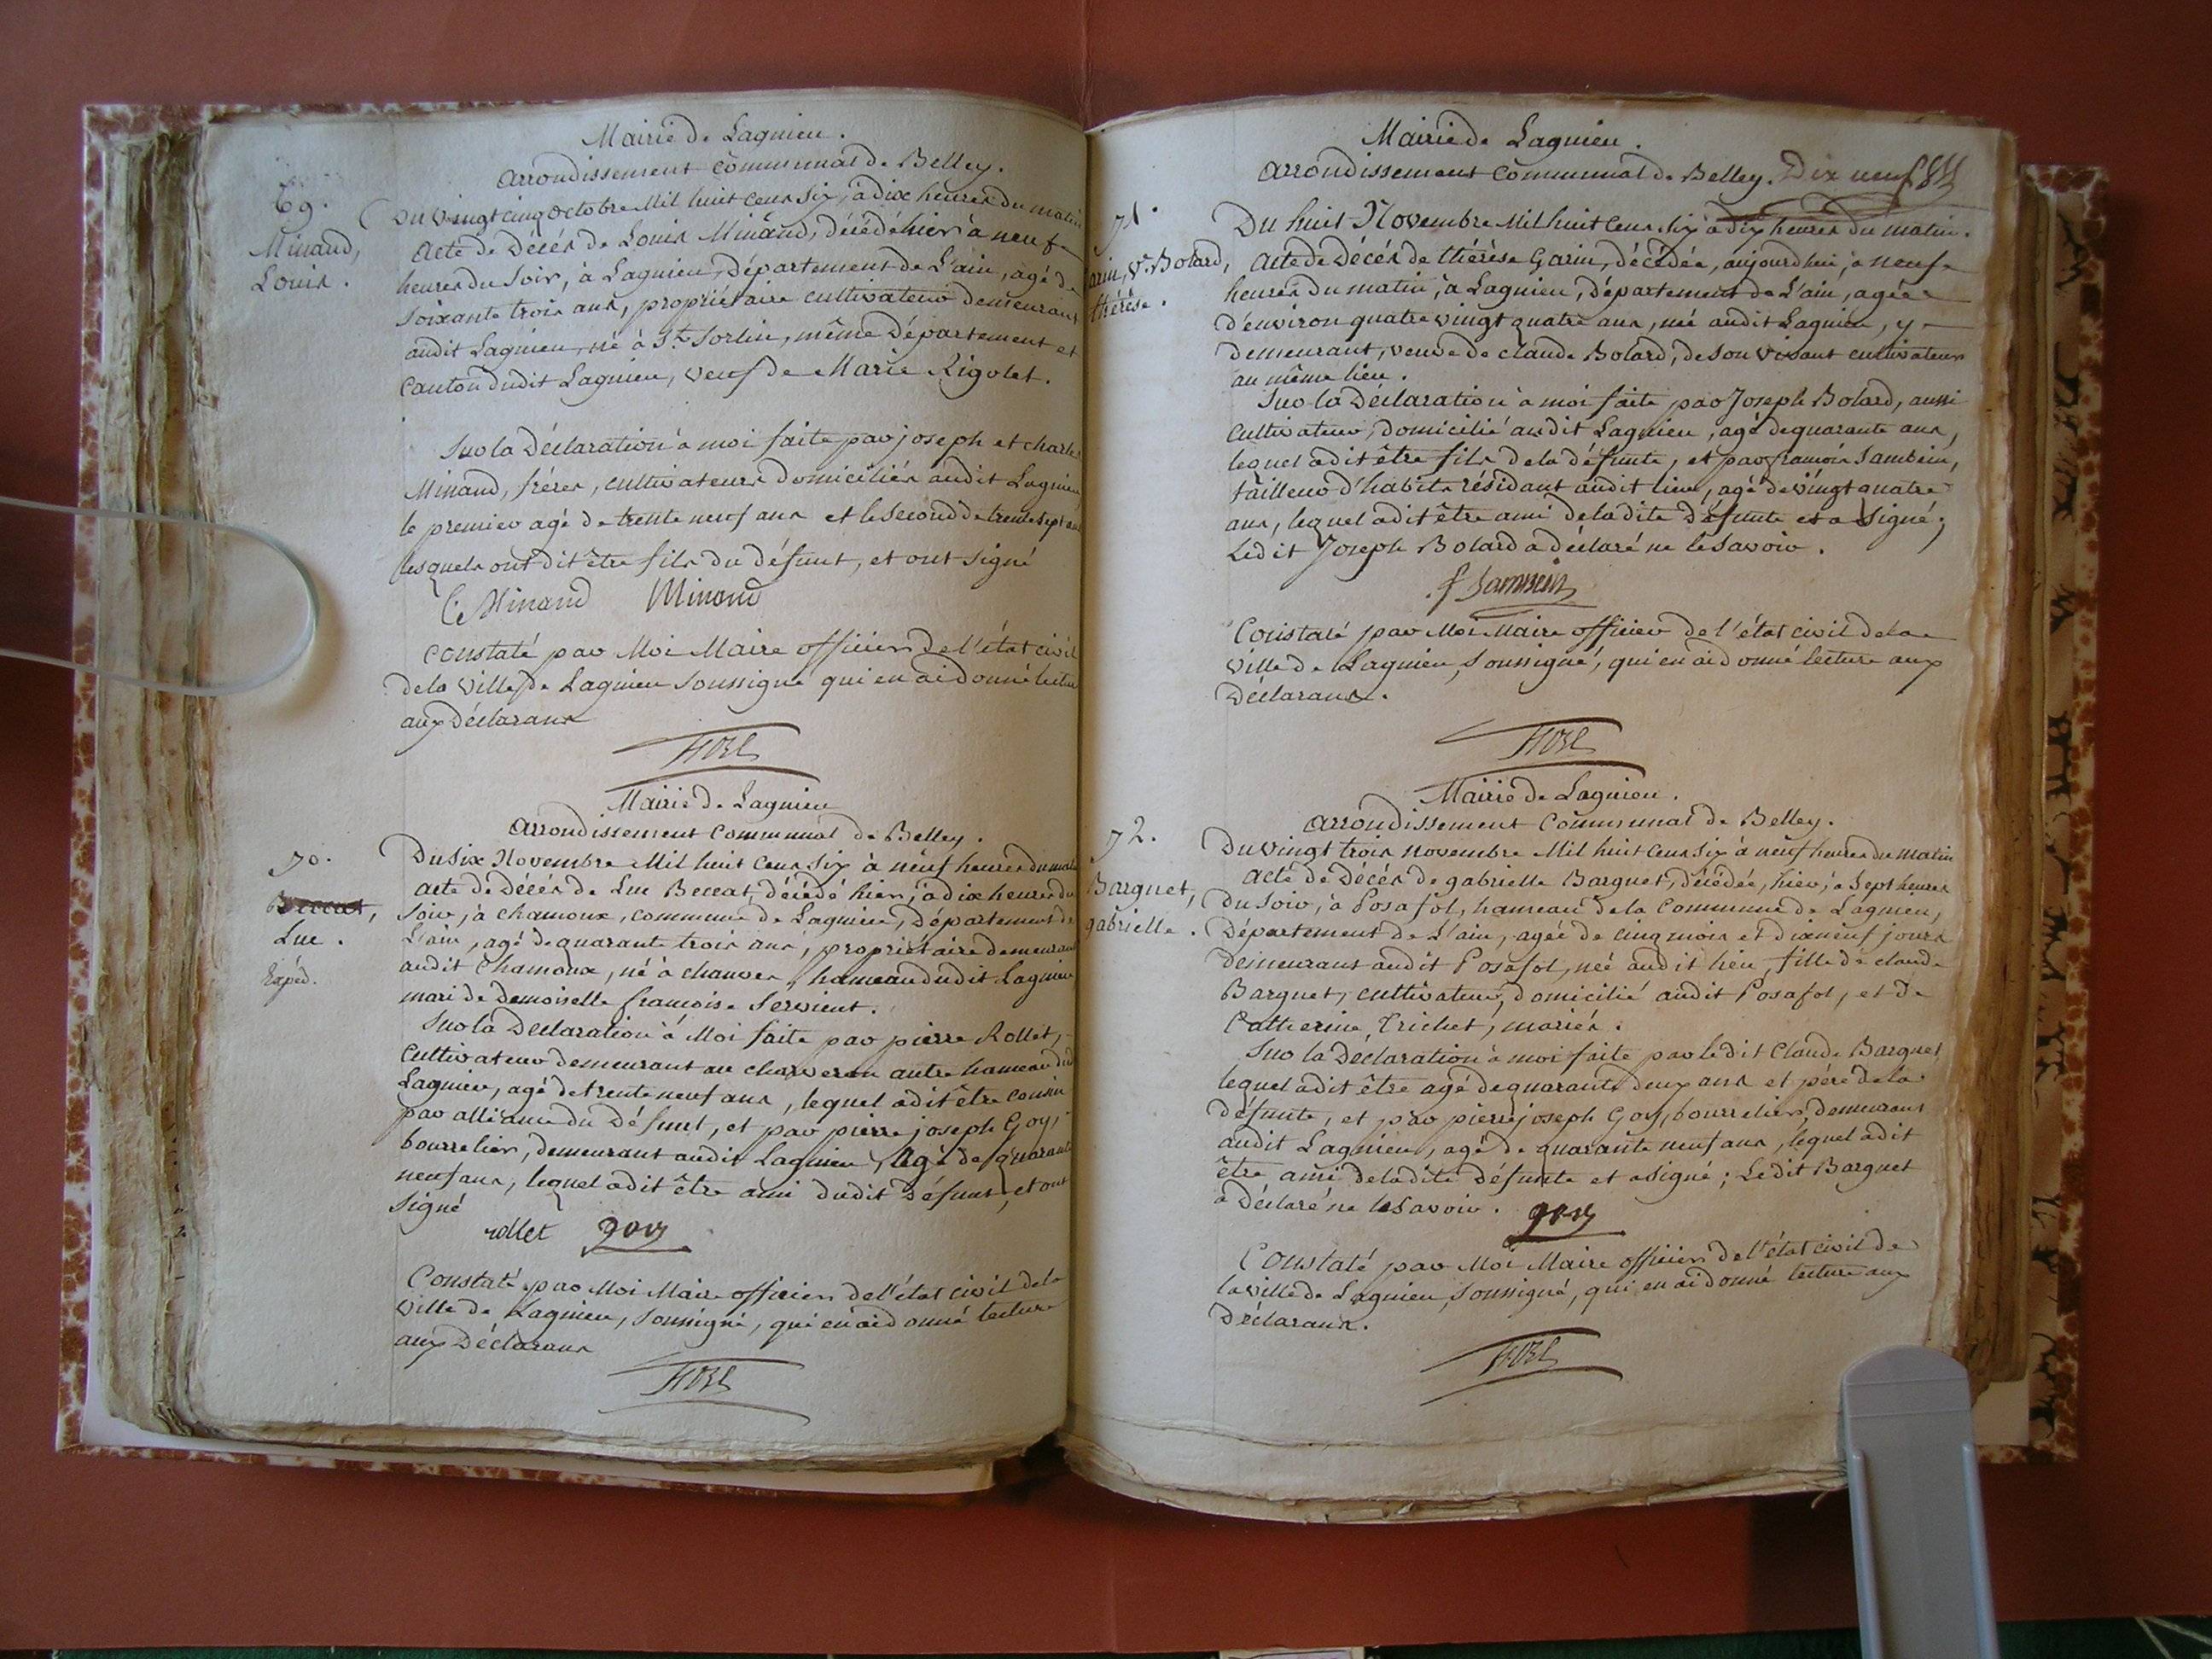 Mairie de Lagnieu.
Arrondissement Communal de Belley.
69.
Minand,
Louis.
Du vingt cinq octobre Mil huit cens six, à dix heures du matin
Acte de Décès de Louis Minand, décédé hier à neuf
heures du soir, à Lagnieu, Département de L'ain, agé de
soixante trois ans, propriétaire cultivateur demeurant
audit Lagnieu, né à St. Sorlin, même Département et
Canton dudit Lagnieu, veuf de Marie Rigolet.
Sur la Déclaration à moi faite par joseph et charles
Minand, frères, cultivateurs domiciliés audit Lagnieu
le premier agé de trente neuf ans et le second de trente sept ans
lesquels ont dit être fils du défunt, et ont signé
C. Minand Minand
Constaté par Moi Maire officier de l'état civil
de la ville de Lagnieu soussigné qui en ai donné lecture
aux Déclarans
Mairie de Lagnieu
Arrondissement Communal de Belley.
70.
Luc.
Expéd.
Du six Novembre Mil huit Cens six à neuf heures du matin
acte de Décès de Luc Beccat, décédé hier, à dix heures du
soir, à chamoux, commune de Lagnieu, Département de
L'ain, agé de quarante trois ans, propriétaire demeurant
audit Chamoux, né à chanves, hameau dudit Lagnieu
mari de Demoiselle françoise Servient.
Sur la Déclaration à Moi faite par pierre Rollet,
Cultivateur demeurant au charveron autre hameau dud
Lagnieu, agé de trente neuf ans, lequel a dit être cousin
par alliance du Défunt, et par pierre joseph Goy,
bourrelier, demeurant audit Lagnieu, agé de quarante
neuf ans, lequel a dit être ami dudit Défunt, et ont
signé
rollet goy
Constaté par Moi Maire officier de l'état civil de la
ville de Lagnieu, soussigné, qui en ai donné lecture
aux Déclarans
Mairie de Lagnieu.
Arrondissement Communal de Belley. Dix neuf
71.
arin, Ve. Bolard,
thérèse.
Du huit Novembre Mil huit Cens six à dix heures du matin.
Acte de Décès de thérèse Garin, décédée, aujourdhui, à neuf
heures du matin, à Lagnieu, Département de L'ain, agée
d'environ quatre vingt quatre ans, né audit Lagnieu, y
demeurant, veuve de Claude Bolard, de son vivant cultivateur
au même lieu.
Sur la Déclaration à moi faite par Joseph Bolard, aussi
Cultivateur, domicilié audit Lagnieu, agé de quarante ans,
lequel a dit être fils de la défunte, et par françois Sambein,
tailleur d'habits résidant audit lieu, agé de vingt quatre
ans, lequel a dit être ami de ladite Défunte et a signé;
Ledit Joseph Bolard a déclaré ne le savoir.
f Sambein
Constaté par Moi Maire officier de l'état civil de la
ville de Lagnieu, soussigné, qui en ai donné lecture aux
Déclarans.
Mairie de Lagnieu.
Arrondissement Communal de Belley.
72.
Barquet,
gabrielle.
Du vingt trois novembre Mil huit Cens six à neuf heures du matin
Acte de Décès de gabrielle Barquet, décédée, hier, à sept heures
du soir, à Posafol, hameau de la Commune de Lagnieu,
Département de L'ain, agée de cinq mois et dix neuf jours
demeurant audit Posafol, née audit lieu, fille de claude
Barquet, cultivateur, domicilié audit Posafol, et de
Catherine Trichet, mariés.
Sur la Déclaration à moi faite par ledit Claude Barquet,
lequel a dit être agé de quarante deux ans et père de la
défunte, et par pierre joseph Goy, bourrelier, demeurant
audit Lagnieu, agé de quarante neuf ans, lequel a dit
être ami de ladite défunte et a signé; Ledit Barquet
a Déclaré ne le savoir. goy
Constaté par Moi Maire officier de l'état civil de
la ville de Lagnieu, soussigné, qui en ai donné lecture aux
Déclarans.